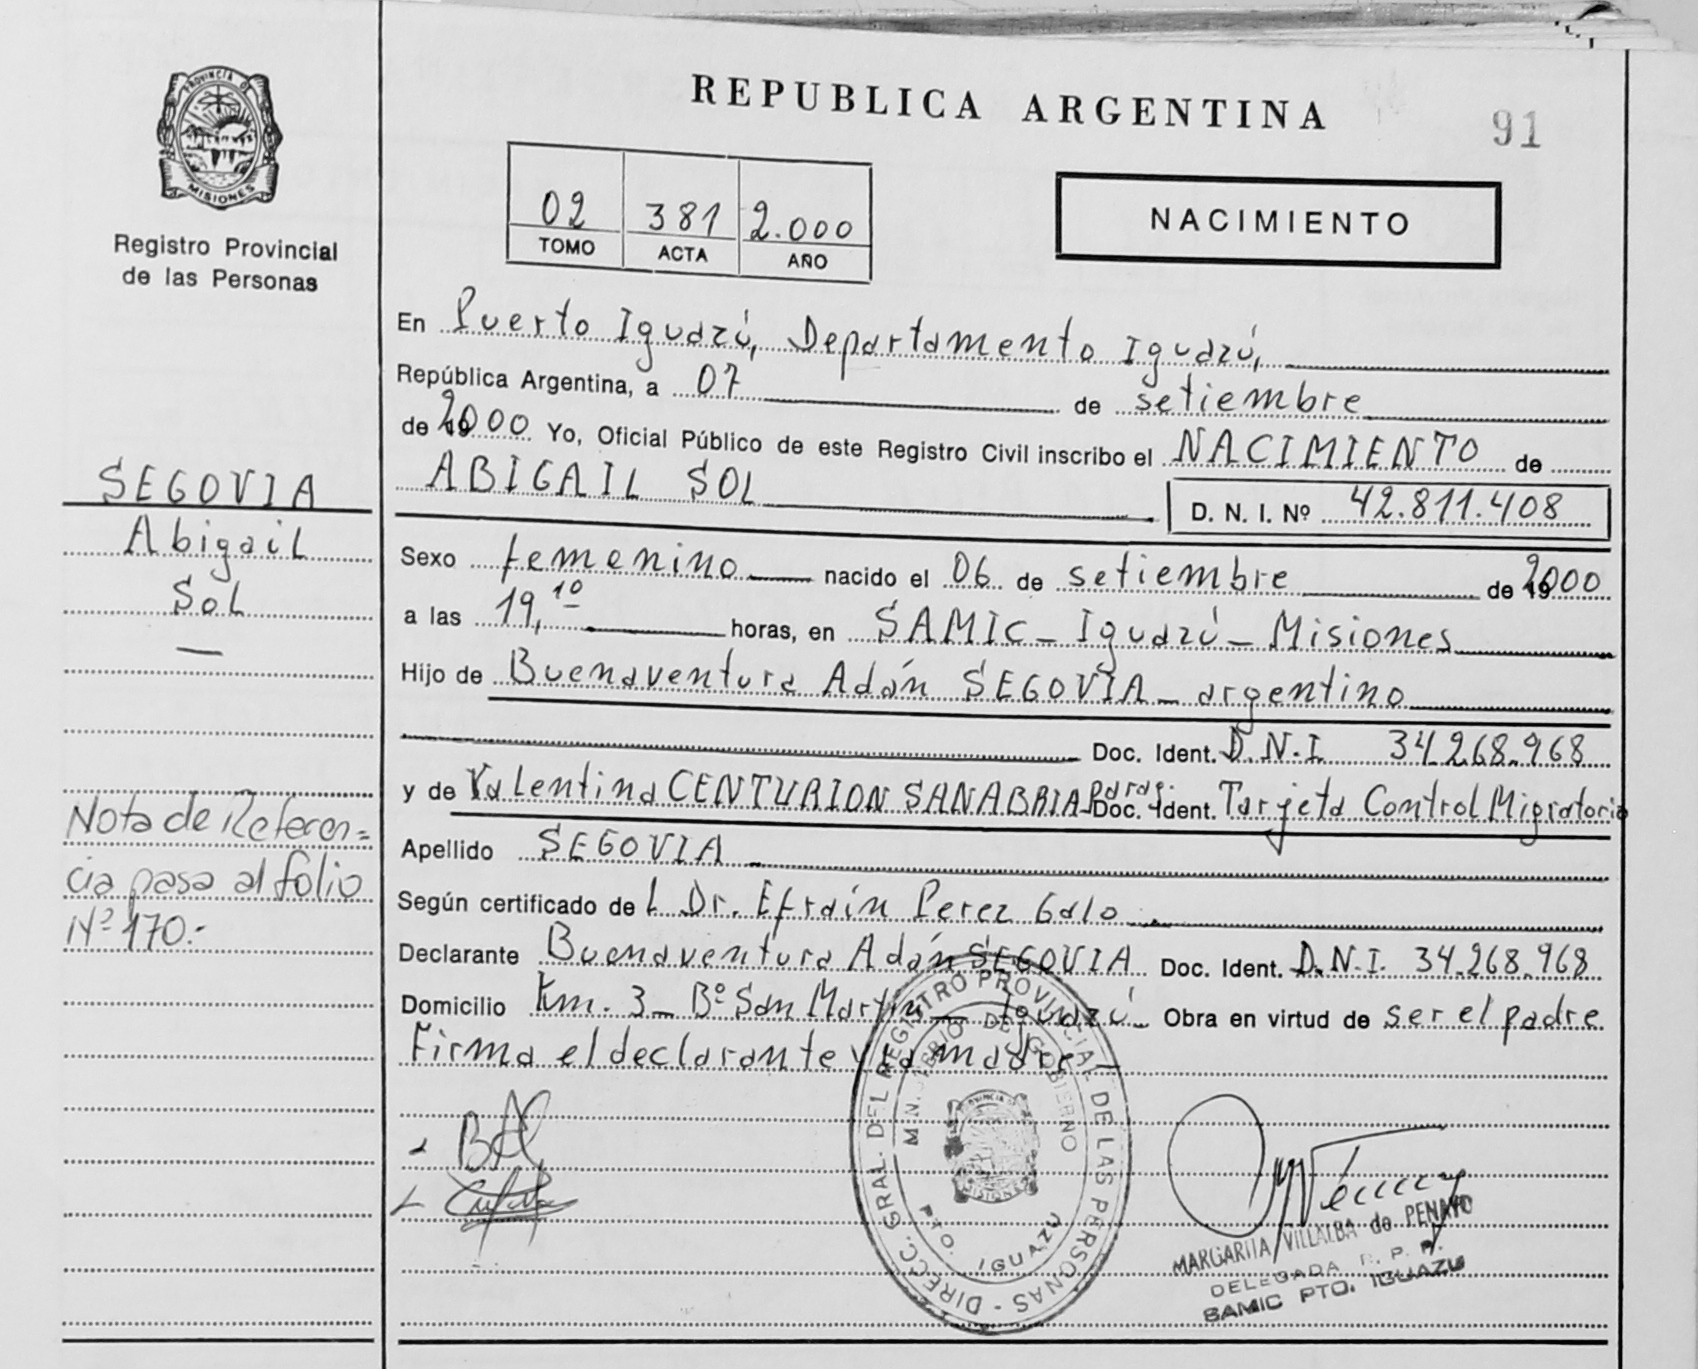 PROVINCIA DE
MISIONES
Registro Provincial
de las Personas
SEGOVIA
Abigail
Sol
Nota de Referen=
cia pasa al folio
Nº 170.-
REPUBLICA ARGENTINA
91
02 381 2.000
TOMO ACTA AÑO
NACIMIENTO
En Puerto Iguazú, Departamento Iguazú,
República Argentina, a 07 de setiembre
de 2000 Yo, Oficial Público de este Registro Civil inscribo el NACIMIENTO de
ABIGAIL SOL
D. N. I. Nº 42.811.408
Sexo femenino nacido el 06 de setiembre de 2000
a las 19,10 horas, en SAMIC - Iguazú - Misiones
Hijo de Buenaventura Adán SEGOVIA - argentino
Doc. Ident. D.N.I. 34.268.968
y de Valentina CENTURION SANABRIA parag. Doc. Ident. Tarjeta Control Migratorio
Apellido SEGOVIA
Según certificado del Dr. Efraín Perez Galo
Declarante Buenaventura Adán SEGOVIA Doc. Ident. D.N.I. 34.268.968
Domicilio Km. 3 - Bº San Martín - Iguazú - Obra en virtud de ser el padre
Firma el declarante y la madre
DIREC. GRAL. DEL REGISTRO PROVINCIAL DE LAS PERSONAS -
MINISTERIO DE GOBIERNO
PROVINCIA DE
MISIONES
PTO. IGUAZU
MARGARITA VILLALBA de PENAYO
DELEGADA R. P. P.
SAMIC PTO. IGUAZU